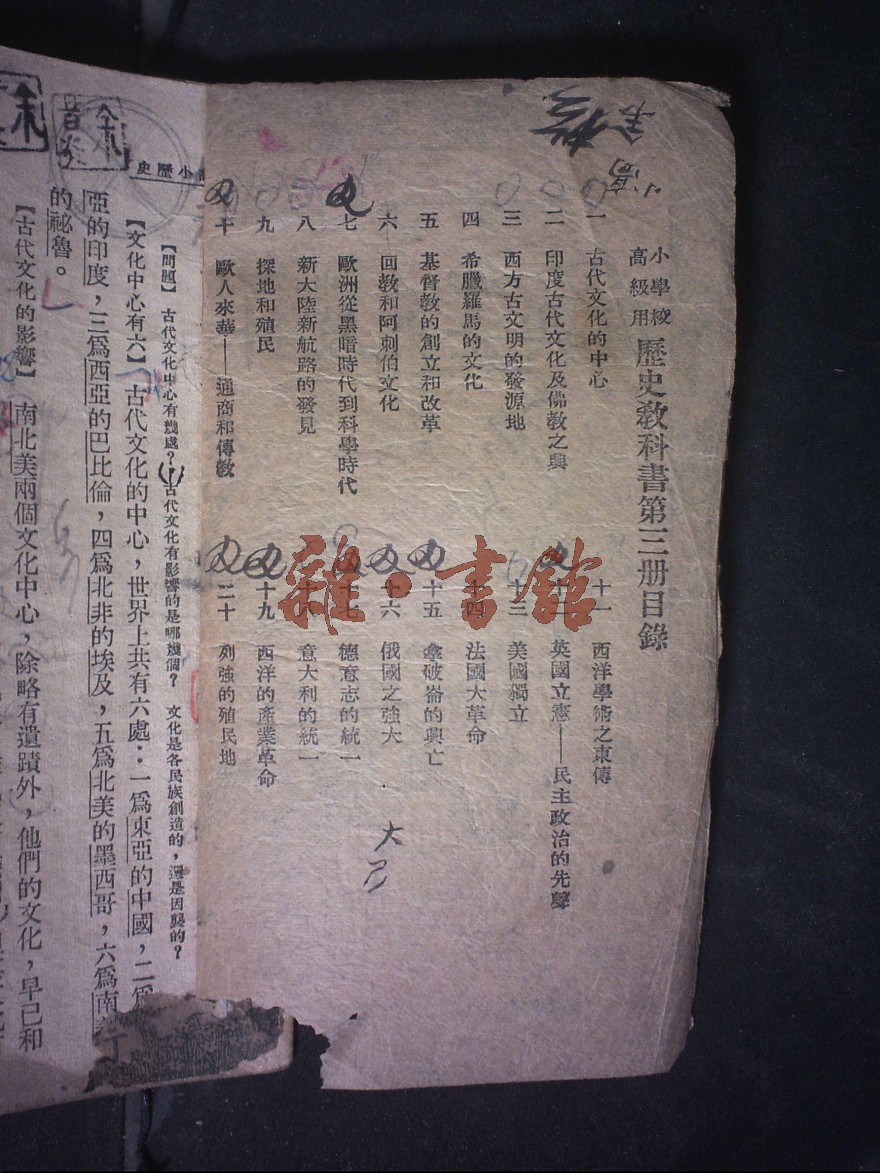 小學校
高級用
歷史教科書第三册目錄
一 古代文化的中心
二 印度古代文化及佛教之興
三 西方古文明的發源地
四 希臘羅馬的文化
五 基督教的創立和改革
六 回教和阿剌伯文化
七 歐洲從黑暗時代到科學時代
八 新大陸新航路的發見
九 探地和殖民
十 歐人來華——通商和傳教
十一 西洋學術之東傳
十二 英國立憲——民主政治的先聲
十三 美國獨立
十四 法國大革命
十五 拿破崙的興亡
十六 俄國之強大
十七 德意志的統一
十八 意大利的統一
十九 西洋的產業革命
二十 列強的殖民地
雜·書館
小歷史
【問題】 古代文化中心有幾處？ 古代文化有影響的是哪幾個？ 文化是各民族創造的，還是因襲的？
【文化中心有六】 古代文化的中心，世界上共有六處：一爲東亞的中國，二爲
亞的印度，三爲西亞的巴比倫，四爲北非的埃及，五爲北美的墨西哥，六爲南
的祕魯。
【古代文化的影響】 南北美兩個文化中心，除略有遺蹟外，他們的文化，早已和